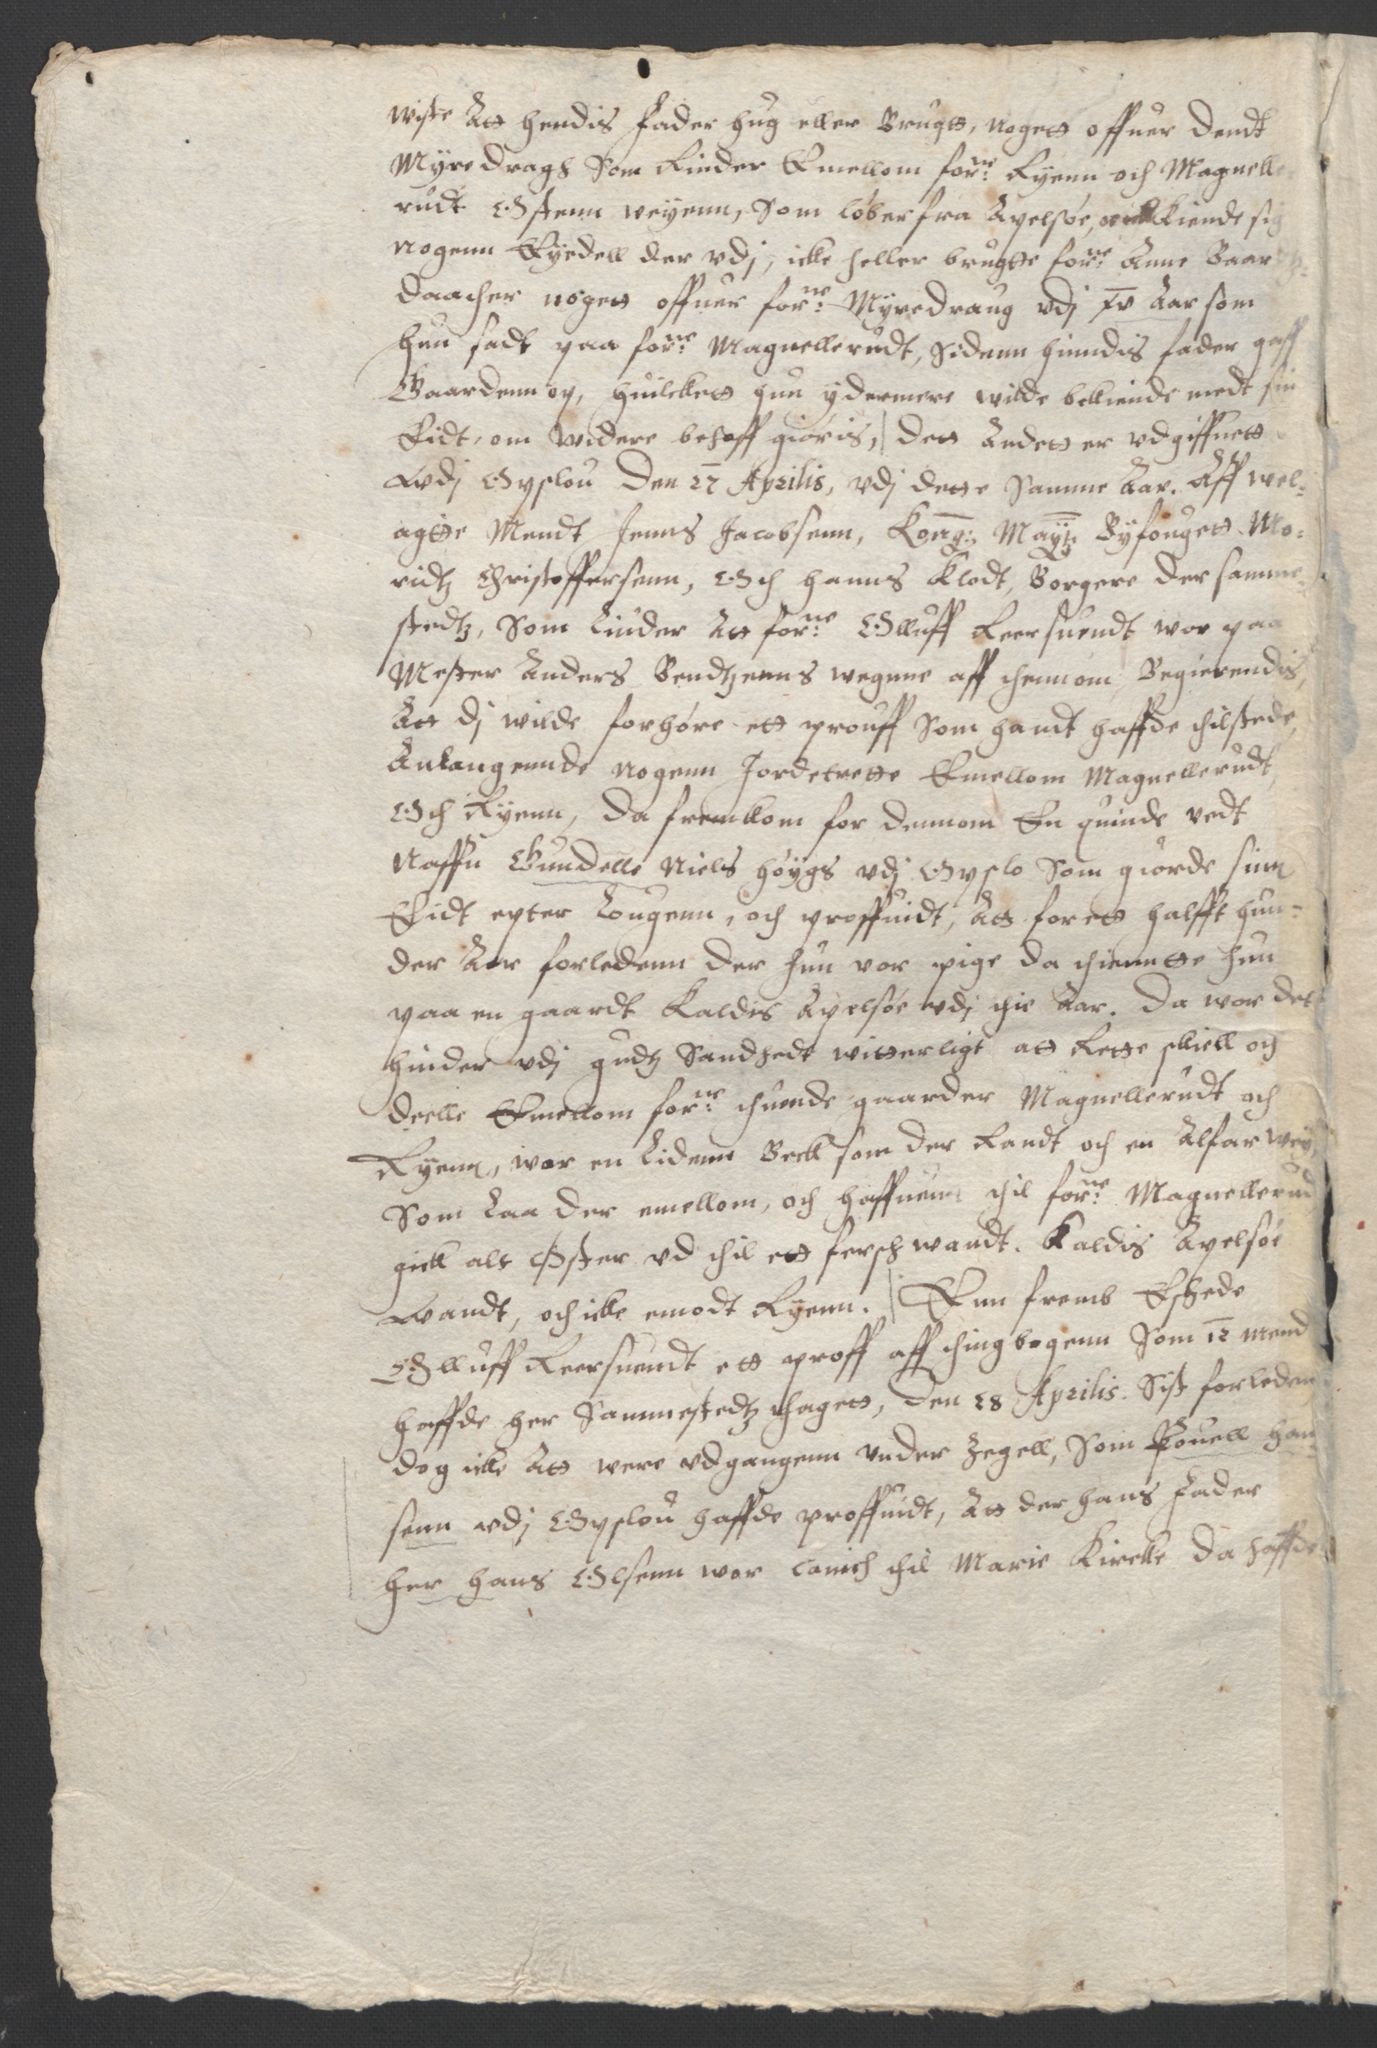 wiste Att hendis Fader hug eller Brugtt, nogett offuer dendt
Myredragh Som Rinder Emellom forne: Ryenn och Magnelle
rudt Østenn weyenn, Som løber fra Apelsøe, Kiendt sig
nogenn Eyedell der vdj, icke heller brugtte forne: Anne Baar
daacher nogett offuer forne: Myredraug vdj xv Aar som
hun sadt paa forne: Magnellerudt, Sidenn hindis fader gaff
Gaardenn op, huilckett hun ydermere wilde bekiende medt sin
Eidt, om widere behoff giøris, Dett Andett er vdgiffuett
Wdj Opslou Den 27 Aprilis, vdj dette Samme Aar. Aff wel-
agtte Mendt Jenns Jacobsenn, Konng: Maytz Byfougett Mo-
ridtz Christoffersenn, Och Hanns Klodt, Borgere der samme-
stedtz, Som Liuder Att forne: Olluff Reersuendt wor paa
Mester Anders Bendtzenns wegnne aff thennom Begierendis,
Att dj wilde forhøre ett prouff Som handt haffde thilstede,
Anlangennde nogenn Jordetrette Emellom Magnellerudt
Och Ryenn, Da fremkom for dennom En quinde vedt
Naffn Gundelle Niels Høygs vdj Opslo Som giorde sinn
Eidt epter Lougenn, och proffuidt, Att for ett halfft hun-
der Aar forledenn der hun vor pige da thienntte hun
paa en gaardt Kaldis Apelsøe vdj thie Aar. Da wor det
hinder vdj gudtz Sandhedt witterligt att Rette skiell och
deelle Emellom forne: thuende gaarder Magnellerudt och
Ryenn, wor en Lidenn Beck som der Randt och en Alfar wey,
Som Laa der emellom, och haffnenn thil forne: Magnellerud
gick alt Øster vd thil ett fersch wandt. Kaldis Apelsøe
Wandt, och icke emodt Ryenn. Enn fremb Eskede
Olluff Reersuendt ett proff aff thingbogenn Som 12 Mend
haffde her Sammestedtz thagett, Den 28 Aprilis. Sist forleden
dog icke Att were vdgangenn vnder Zegell, Som Pouell Han
senn vdj Opslou haffde proffuidt, Att der hans Fader
her Hans Olsenn wor Canich thil Marie Kircke Da haffde